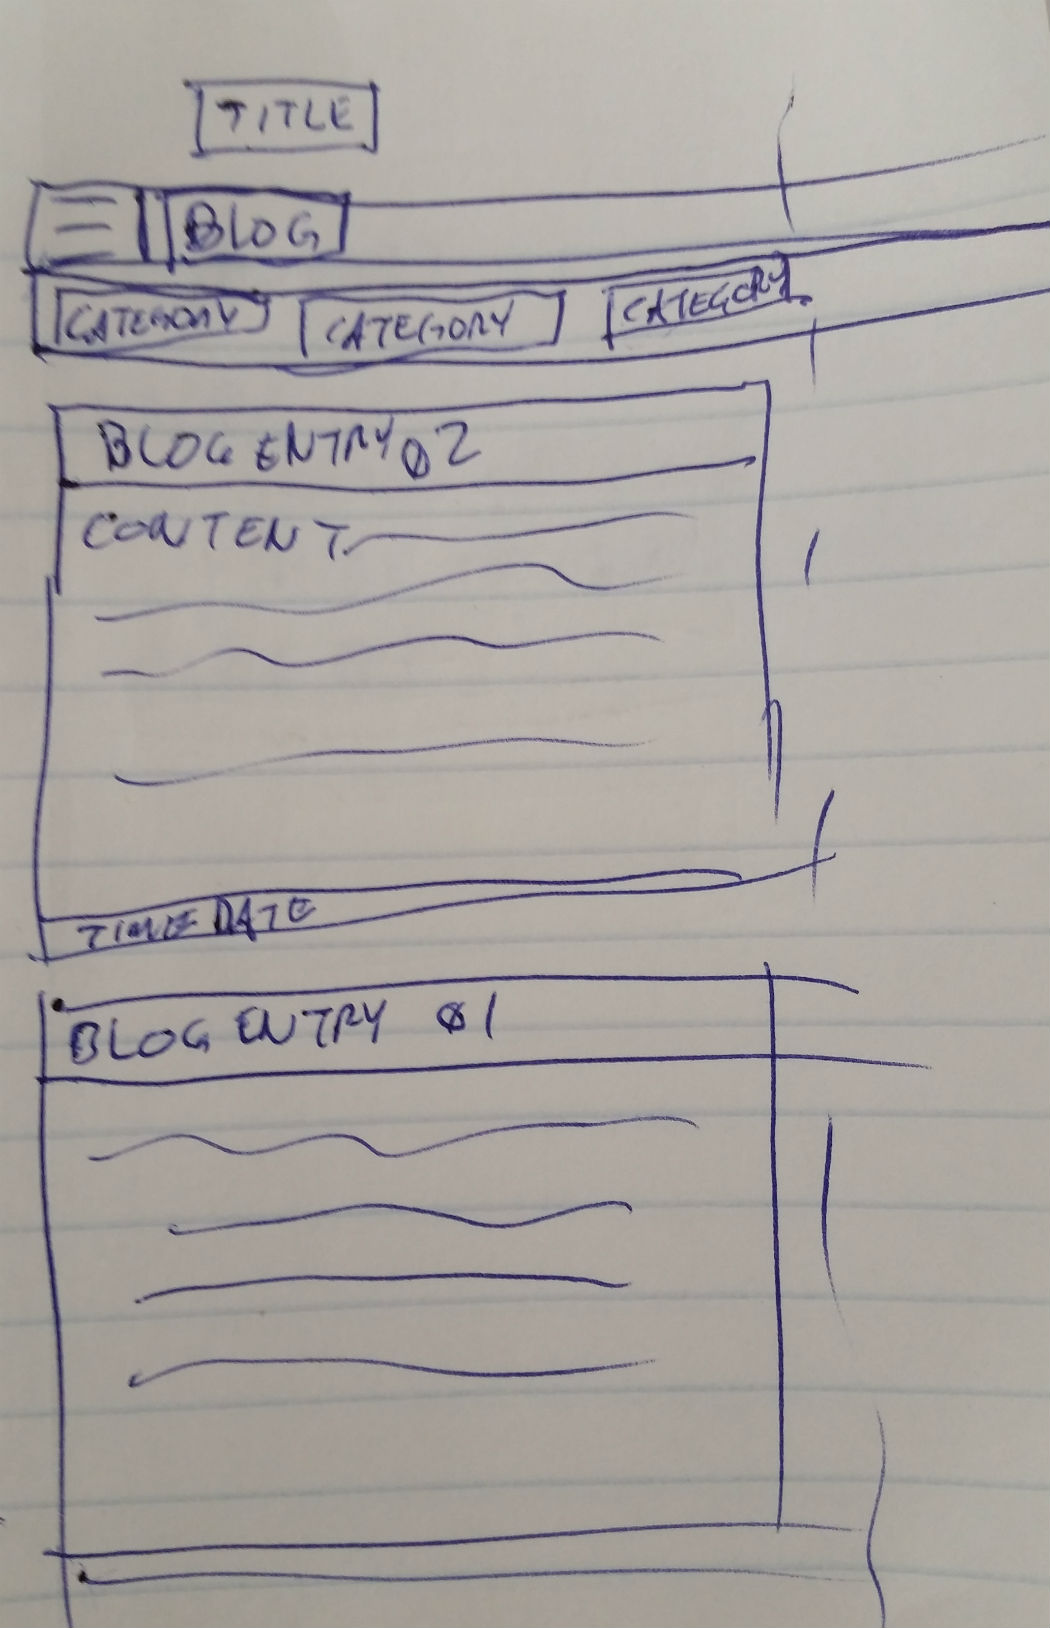 TITLE
BLOG
CATEGORY CATEGORY CATEGORY
BLOG ENTRY 02
CONTENT
TIME DATE
BLOG ENTRY 01